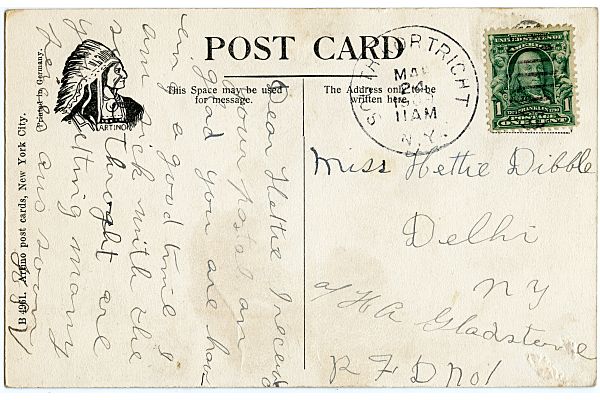 POST CARD
This Space may be used
for message.
The Address only to be
written here.
ARTINO
Printed in Germany.
B 4961. Artino post cards, New York City.
SOUTH KORTRIGHT
MAY
24
11AM
N.Y.
UNITED STATES OF AMERICA
FRANKLIN
1 POSTAGE 1
ONE CENT
Miss Hettie Dibble
Delhi
NY
c/o H A Gladstone
R F D No 1
Dear Hettie I received
your postal am
glad you are hav
eing a good time I
am sick with the
throat are
you getting many